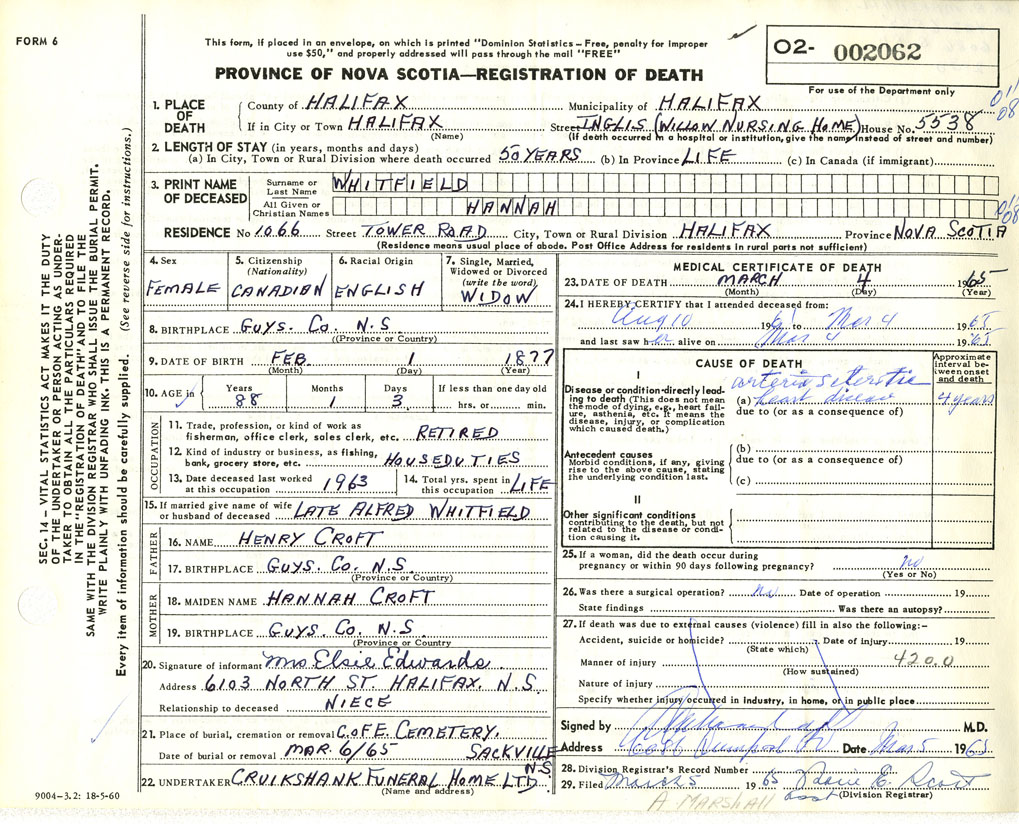 FORM 6
This form, if placed in an envelope, on which is printed "Dominion Statistics – Free, penalty for improper
use $50," and properly addressed will pass through the mail "FREE"
PROVINCE OF NOVA SCOTIA—REGISTRATION OF DEATH
O2- 002062
For use of the Department only
1. PLACE OF DEATH
County of HALIFAX Municipality of HALIFAX
If in City or Town HALIFAX Street INGLIS (WILLOW NURSING HOME) House No. 5538
(Name) (If death occurred in a hospital or institution, give the name instead of street and number)
2. LENGTH OF STAY (in years, months and days)
(a) In City, Town or Rural Division where death occurred 50 YEARS (b) In Province LIFE (c) In Canada (if immigrant)
3. PRINT NAME OF DECEASED
Surname or Last Name WHITFIELD
All Given or Christian Names HANNAH
RESIDENCE No 1066 Street TOWER ROAD City, Town or Rural Division HALIFAX Province NOVA SCOTIA
(Residence means usual place of abode. Post Office Address for residents in rural parts not sufficient)
4. Sex FEMALE
5. Citizenship (Nationality) CANADIAN
6. Racial Origin ENGLISH
7. Single, Married, Widowed or Divorced (write the word) WIDOW
8. BIRTHPLACE GUYS. CO. N.S.
(Province or Country)
9. DATE OF BIRTH FEB. 1 1877
(Month) (Day) (Year)
10. AGE in Years 88 Months 1 Days 3 If less than one day old hrs. or min.
OCCUPATION
11. Trade, profession, or kind of work as
fisherman, office clerk, sales clerk, etc. RETIRED
12. Kind of industry or business, as fishing,
bank, grocery store, etc. HOUSEDUTIES
13. Date deceased last worked at this occupation 1963
14. Total yrs. spent in this occupation LIFE
15. If married give name of wife
or husband of deceased LATE ALFRED WHITFIELD
FATHER
16. NAME HENRY CROFT
17. BIRTHPLACE GUYS. CO. N.S.
(Province or Country)
MOTHER
18. MAIDEN NAME HANNAH CROFT
19. BIRTHPLACE GUYS. CO. N.S.
(Province or Country)
20. Signature of informant Mrs Elsie Edwards
Address 6103 NORTH ST. HALIFAX. N.S.
Relationship to deceased NIECE
21. Place of burial, cremation or removal C.OFE. CEMETERY.
Date of burial or removal MAR. 6/65 SACKVILLE N.S.
22. UNDERTAKER CRUIKSHANK FUNERAL HOME LTD
(Name and address)
MEDICAL CERTIFICATE OF DEATH
23. DATE OF DEATH MARCH 4 1965
(Month) (Day) (Year)
24. I HEREBY CERTIFY that I attended deceased from:
Aug 10 1961 to Mar 4 1965
and last saw her alive on Mar 4 1965
CAUSE OF DEATH
Approximate interval between onset and death
I
Disease or condition directly leading to death (This does not mean
the mode of dying, e.g., heart failure, asthenia, etc. It means the
disease, injury, or complication which caused death.)
(a) heart disease 4 years
due to (or as a consequence of)
Antecedent causes
Morbid conditions, if any, giving rise to the above cause, stating
the underlying condition last.
(b)
due to (or as a consequence of)
(c)
II
Other significant conditions
contributing to the death, but not related to the disease or condition causing it.
25. If a woman, did the death occur during
pregnancy or within 90 days following pregnancy? no
(Yes or No)
26. Was there a surgical operation? No Date of operation 19
State findings Was there an autopsy?
27. If death was due to external causes (violence) fill in also the following:-
Accident, suicide or homicide? Date of injury 19
(State which)
Manner of injury 420.0
(How sustained)
Nature of injury
Specify whether injury occurred in industry, in home, or in public place
Signed by M.D.
Address Date Mar 5 1965
28. Division Registrar's Record Number
29. Filed March 5 1965 E. Scott
(Division Registrar)
A. MARSHALL
9004-3.2: 18-5-60
SEC. 14 – VITAL STATISTICS ACT MAKES IT THE DUTY
OF THE UNDERTAKER OR PERSON ACTING AS UNDER-
TAKER TO OBTAIN ALL THE PARTICULARS REQUIRED
IN THE "REGISTRATION OF DEATH" AND TO FILE THE
SAME WITH THE DIVISION REGISTRAR WHO SHALL ISSUE THE BURIAL PERMIT.
WRITE PLAINLY WITH UNFADING INK. THIS IS A PERMANENT RECORD.
Every item of information should be carefully supplied. (See reverse side for instructions.)